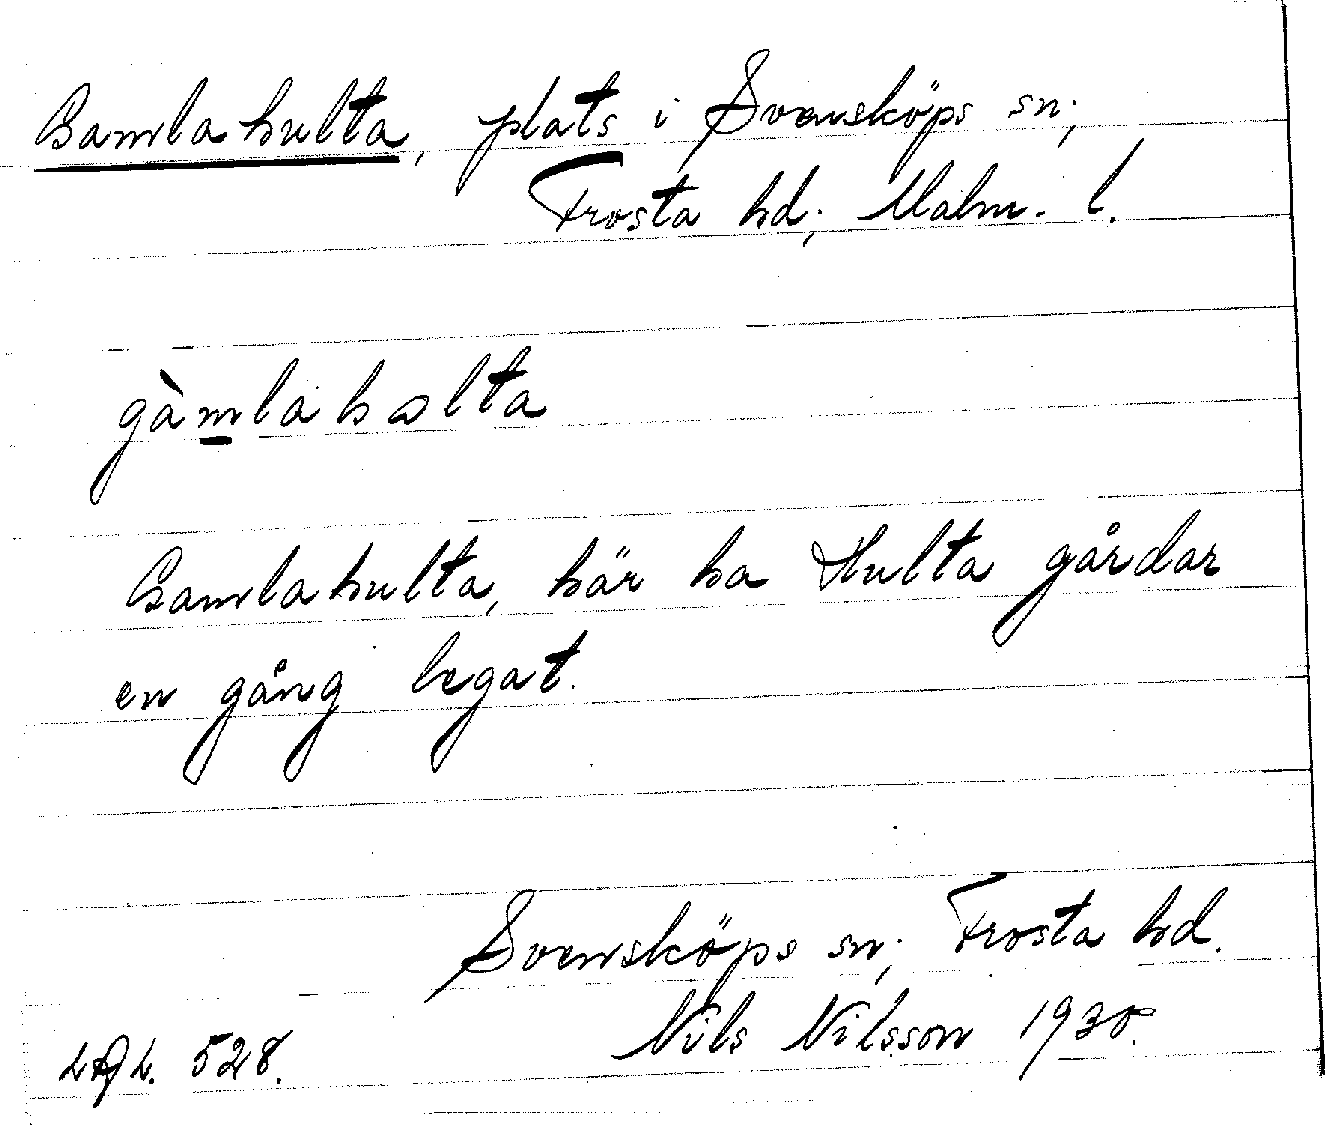 Gamlahulta, plats i Svensköps sn;
Frosta hd; Malm. l.
gàmlahalta
Gamlahulta, här ha Hulta gårdar
en gång legat.
Svensköps sn; Frosta hd.
Nils Nilsson 1930.
528.